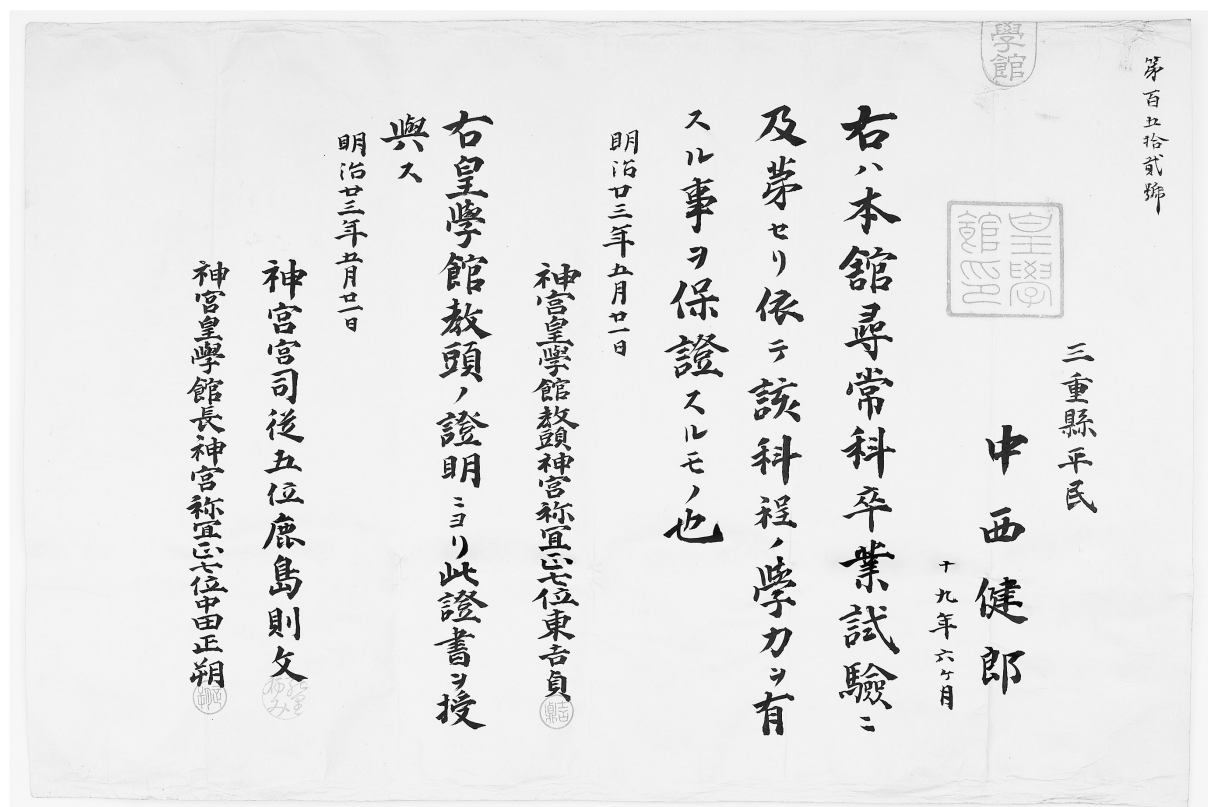 第百五拾貳號
學館
皇學
館印
三重縣平民
中西健郎
十九年六ケ月
右ハ本舘尋常科卒業試驗ニ
及第セリ依テ該科程ノ學力ヲ有
スル事ヲ保證スルモノ也
明治廿三年五月廿一日
神宮皇學館教頭神宮祢宜正七位東吉貞
右皇學館教頭ノ證明ニヨリ此證書ヲ授
與ス
明治廿三年五月廿一日
神宮宮司従五位鹿島則文
神宮皇學館長神宮祢宜正七位中田正朔